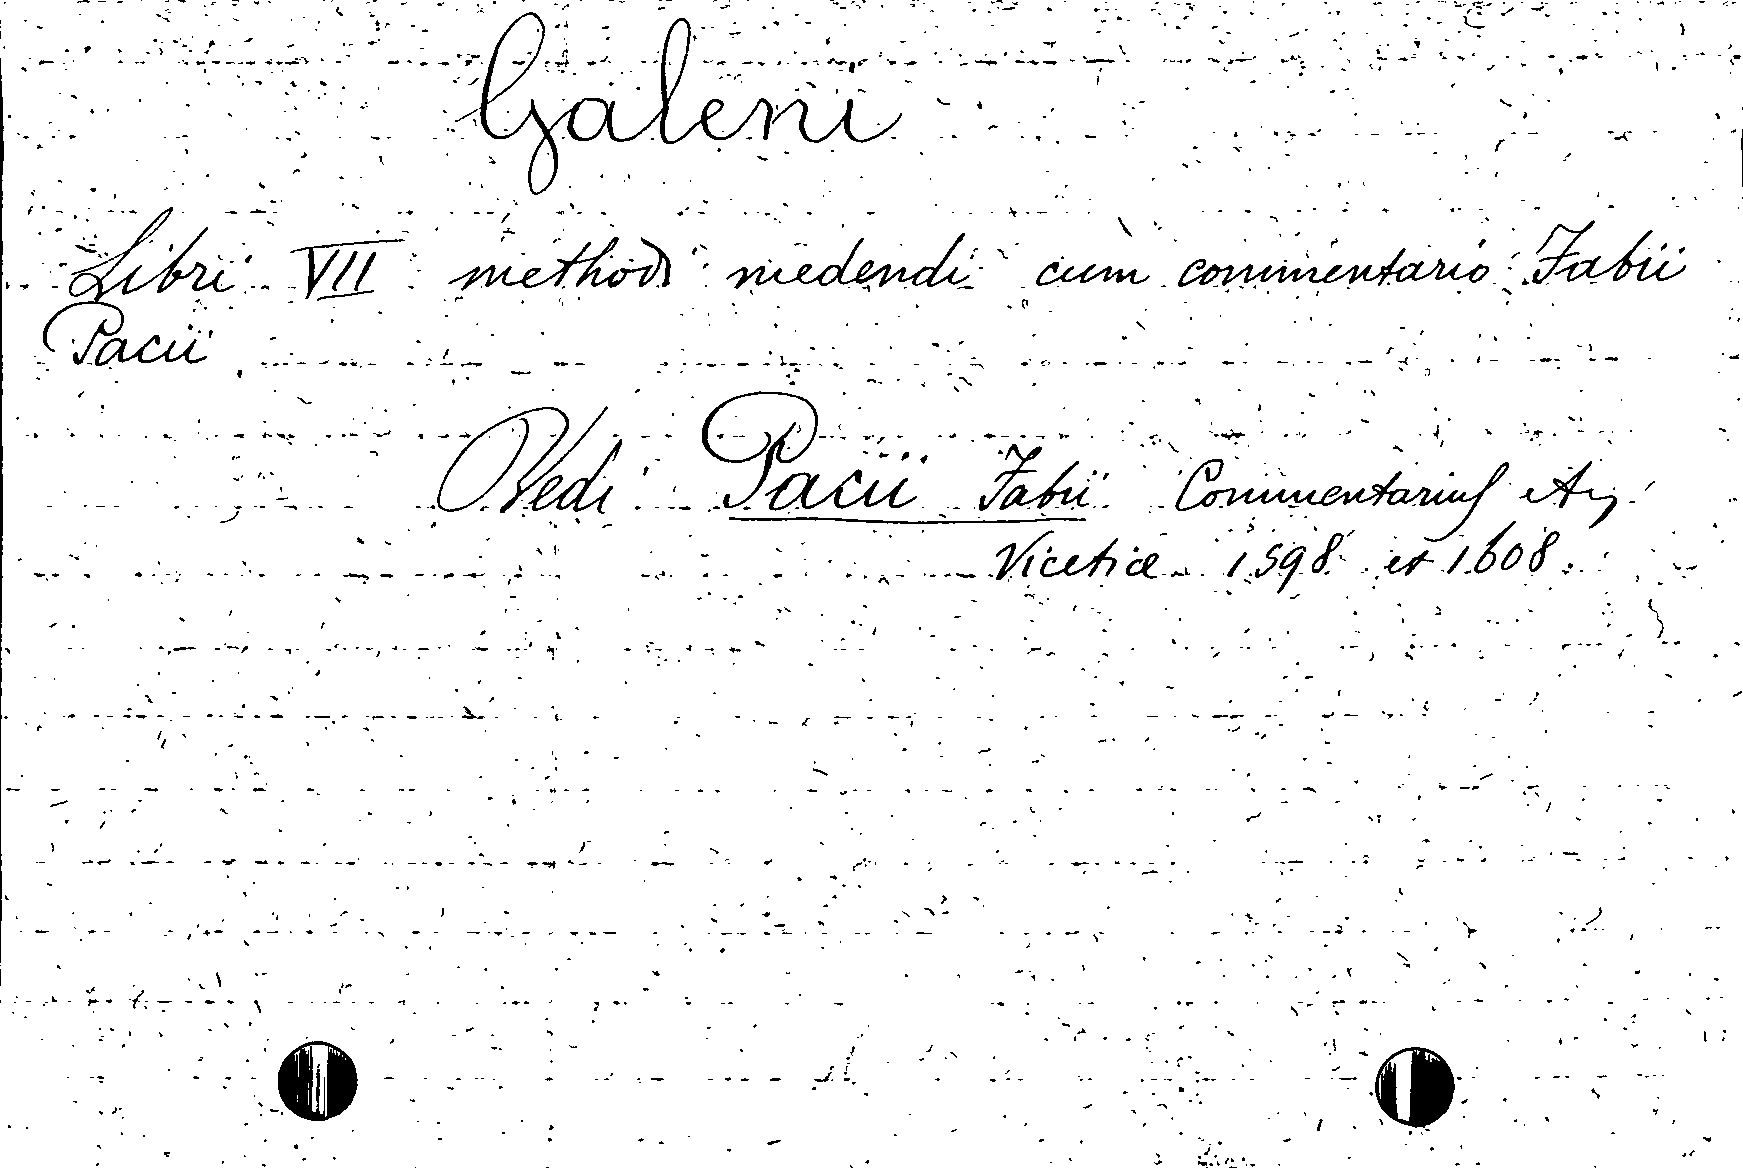 Galeni
Libri VII methodi medendi cum commentario Fabii
Pacii
Vedi Pacii Fabii Commentarius
Vicetiæ 1598 et 1608.